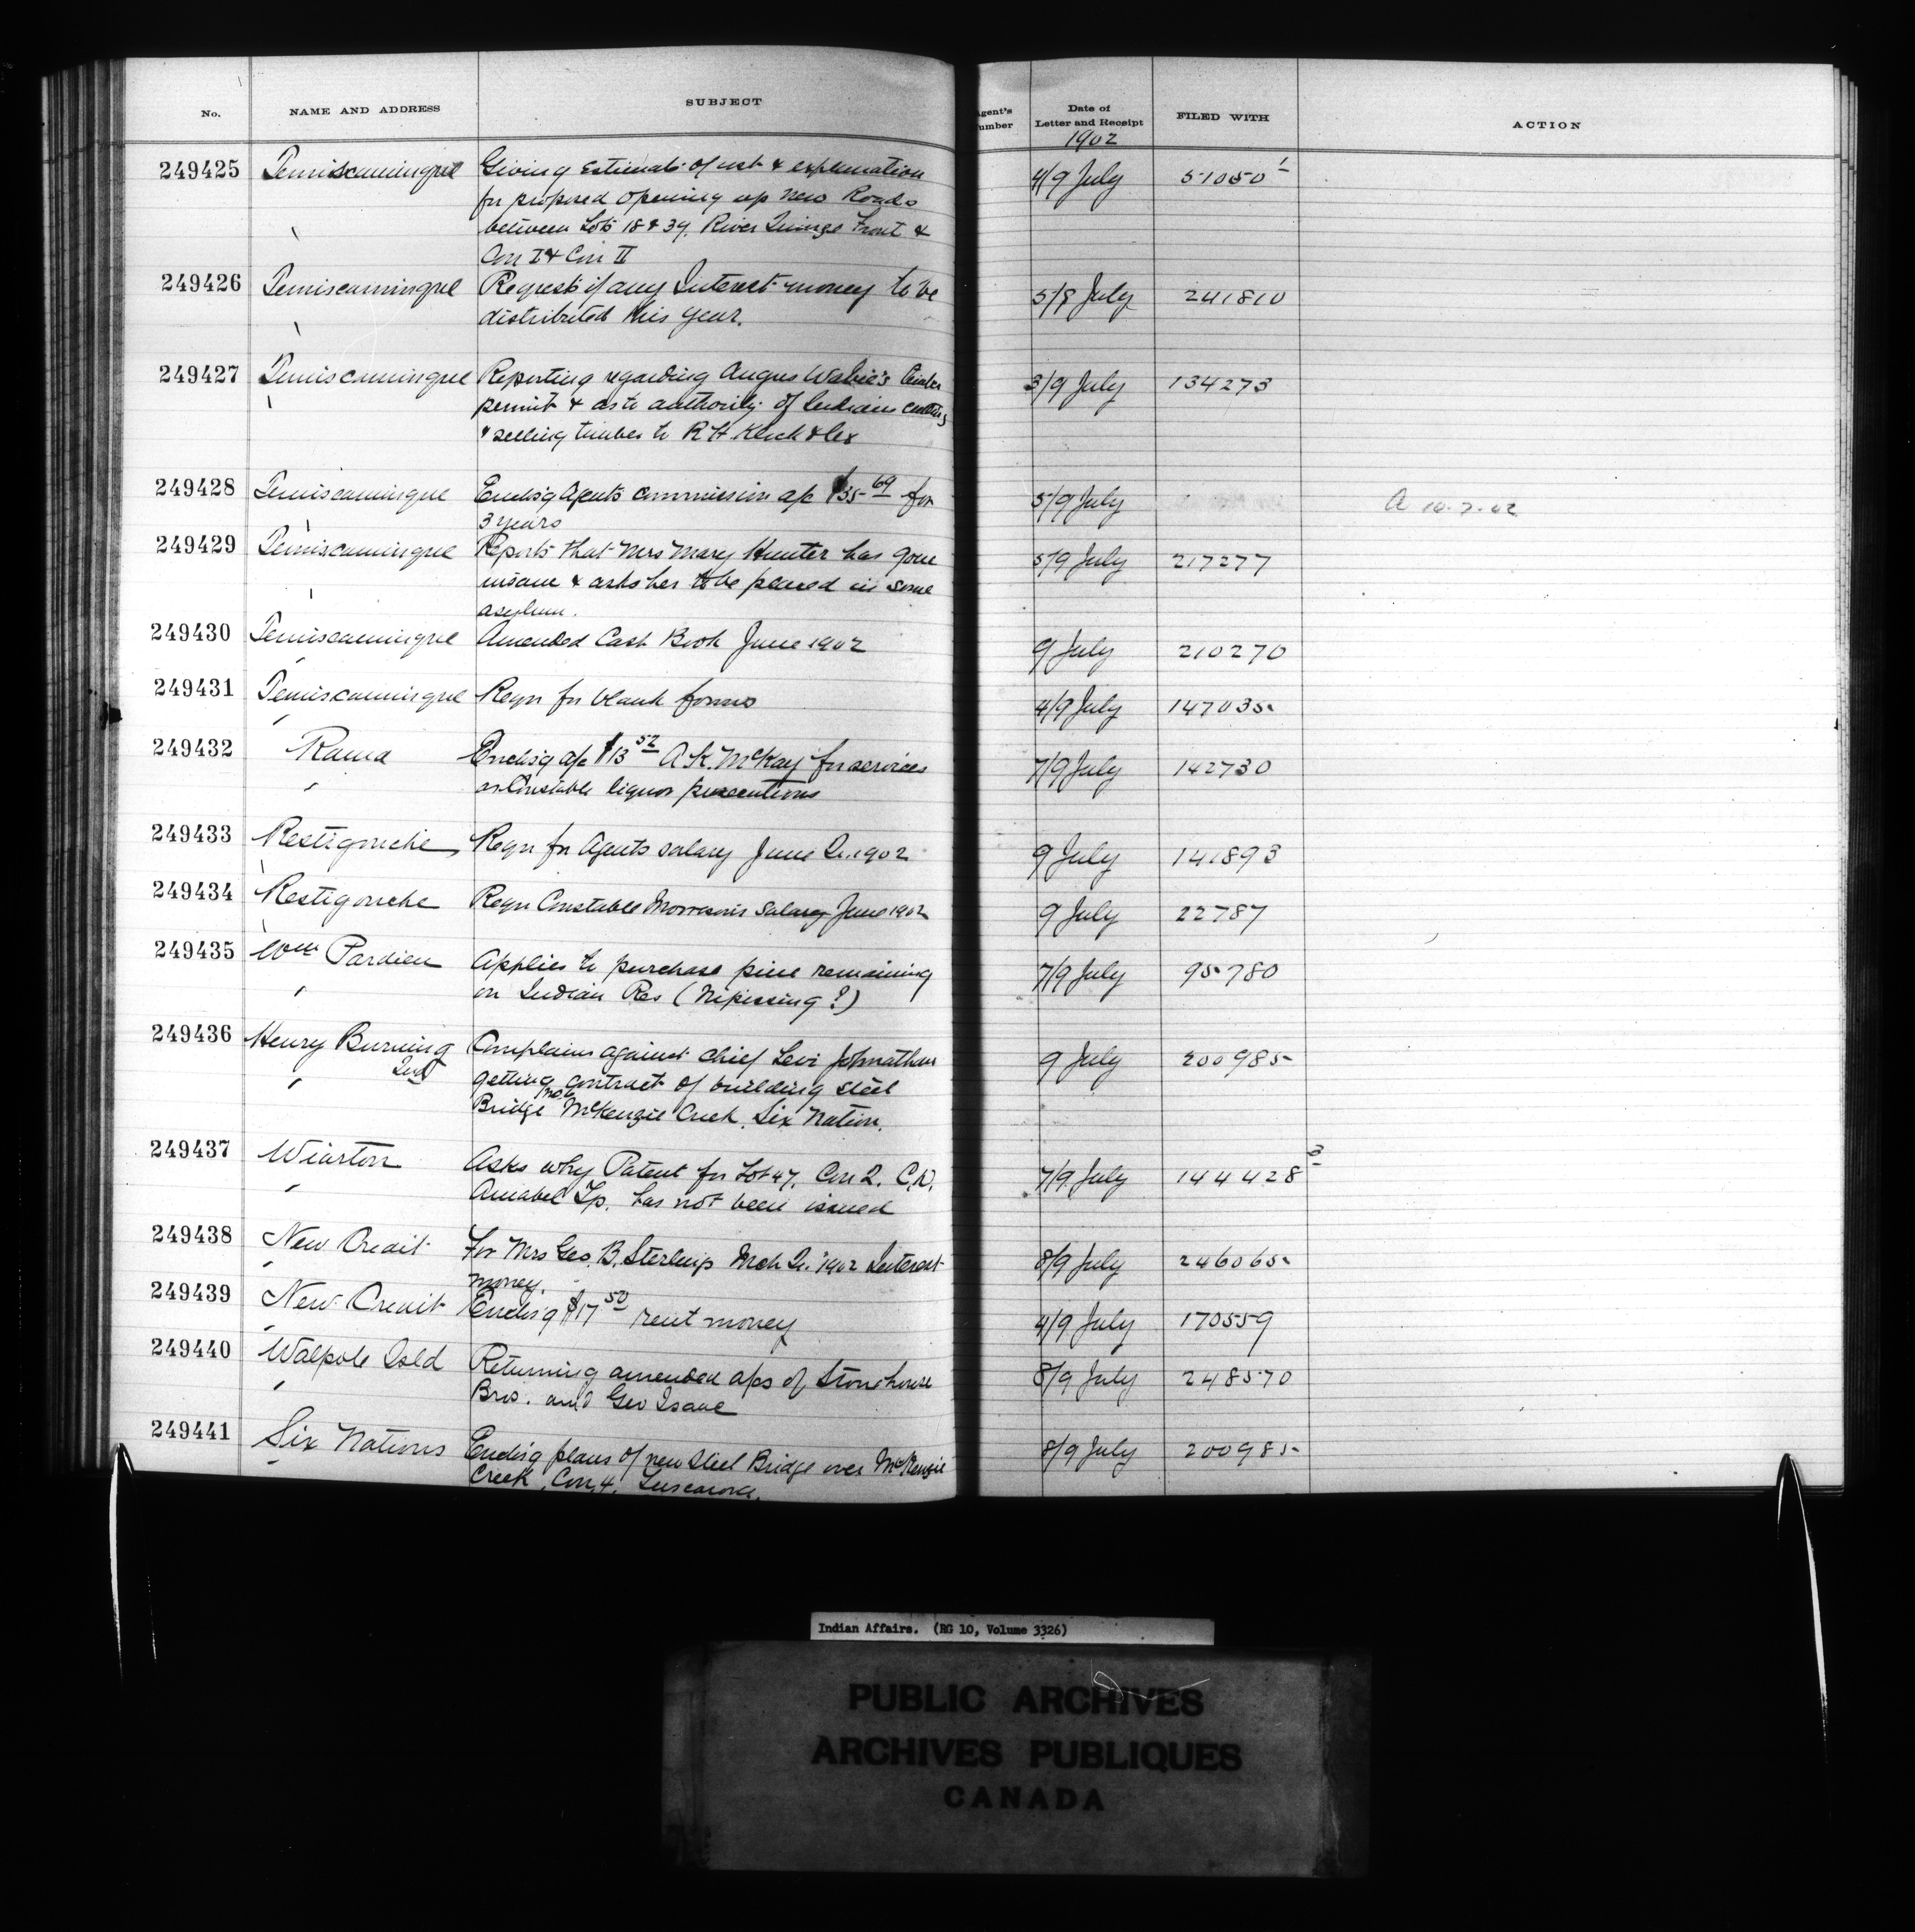 No. NAME AND ADDRESS SUBJECT Agent's Number Date of Letter and Receipt FILED WITH ACTION
1902
249425 Temiscamingue Giving Estimate of cost & explanation 4/9 July 51050 1
for proposed opening up new Roads
between Lots 18 & 39, River Front &
Con I & Con II
249426 Temiscamingue Request if any Interest money to be 5/9 July 241810
distributed this year.
249427 Temiscamingue Reporting regarding Angus Wabie's timber 3/9 July 134273
permit & as to authority of Indians cutting
& selling timber to R H Klock & Co
249428 Temiscamingue Enclosg Agents commission a/c $35 69 for 5/9 July A 10.7.02
3 years
249429 Temiscamingue Reports that Mrs Mary Hunter has gone 5/9 July 217277
insane & asks her to be placed in some
asylum.
249430 Temiscamingue Amended Cash Book June 1902 9 July 210270
249431 Temiscamingue Reqn for blank forms 4/9 July 147035
249432 Rama Enclosg a/c $13 52 A.K. McKay for services 7/9 July 142730
as Constable liquor prosecutions
249433 Restigouche Reqn for Agents salary June Qr. 1902 9 July 141893
249434 Restigouche Reqn Constable Morrison's Salary June 1902 9 July 22787
249435 Wm Pardieu Applies to purchase pine remaining 7/9 July 95780
on Indian Res (Nipissing ?)
249436 Henry Burning Complains against Chief Levi Johnathan 9 July 200985
Ind getting contract of building steel
Bridge McKenzie Creek, Six Nation.
249437 Wiarton Asks why Patent for Lot 47, Con 2. C.D. 7/9 July 144428 3
Amabel Tp. has not been issued
249438 New Credit For Mrs Geo. B. Sterling Mch Qr. 1902 Interest 8/9 July 246065
money.
249439 New Credit Enclosg $17 50 rent money 4/9 July 170559
249440 Walpole Isld Returning amended a/cs of Stonehouse 8/9 July 248570
Bros. and Geo Isaac
249441 Six Nations Enclosg plans of new Steel Bridge over McKenzie 8/9 July 200985
Creek, Con 4, Tuscarora.
Indian Affairs. (RG 10, Volume 3326)
PUBLIC ARCHIVES
ARCHIVES PUBLIQUES
CANADA